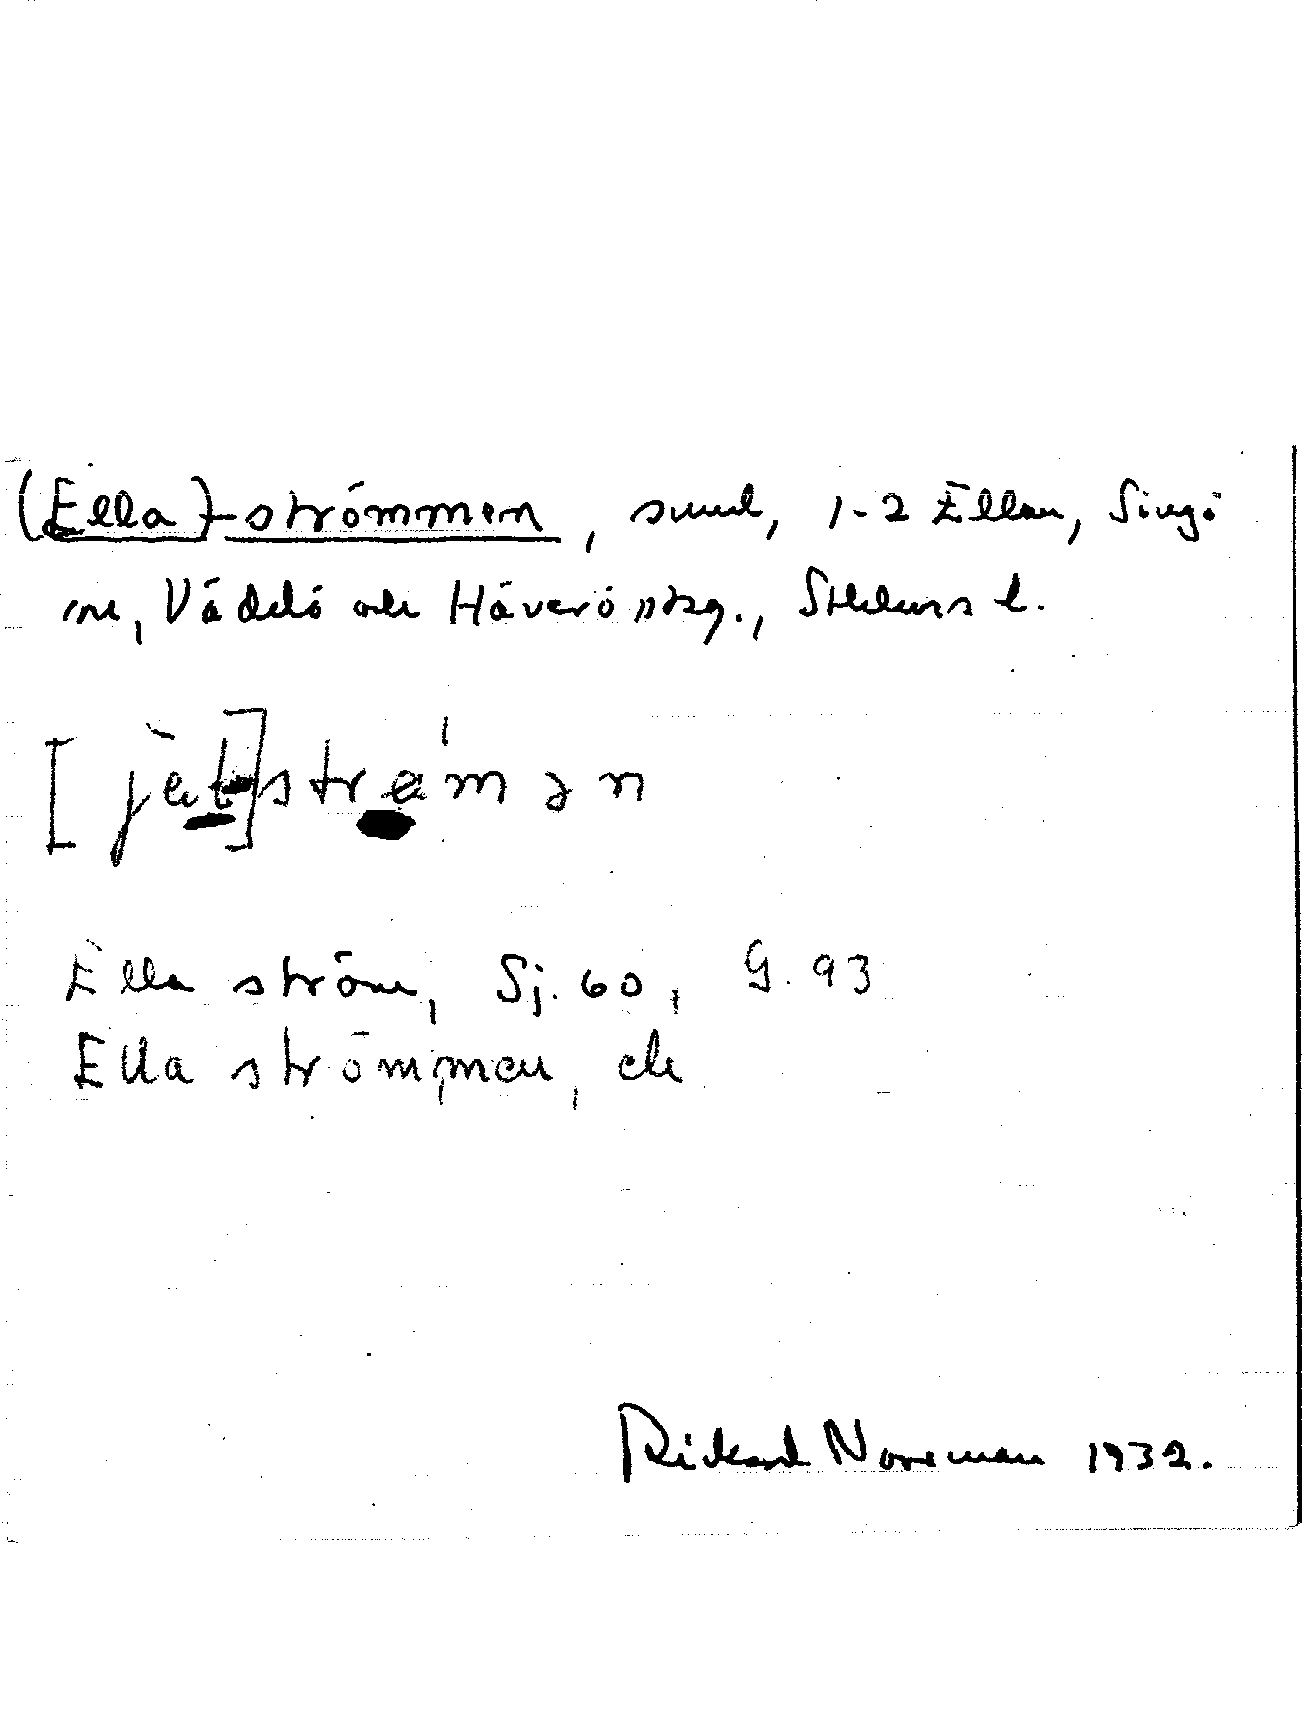 (Ella)-strömmen, sund, 1-2 Ellan, Singö
sn, Väddö och Häverö skg., Sthlms l.
Ella ström, Sj. 60, G. 93
Ella strömmen, ek
Rickard Noreman 1932.